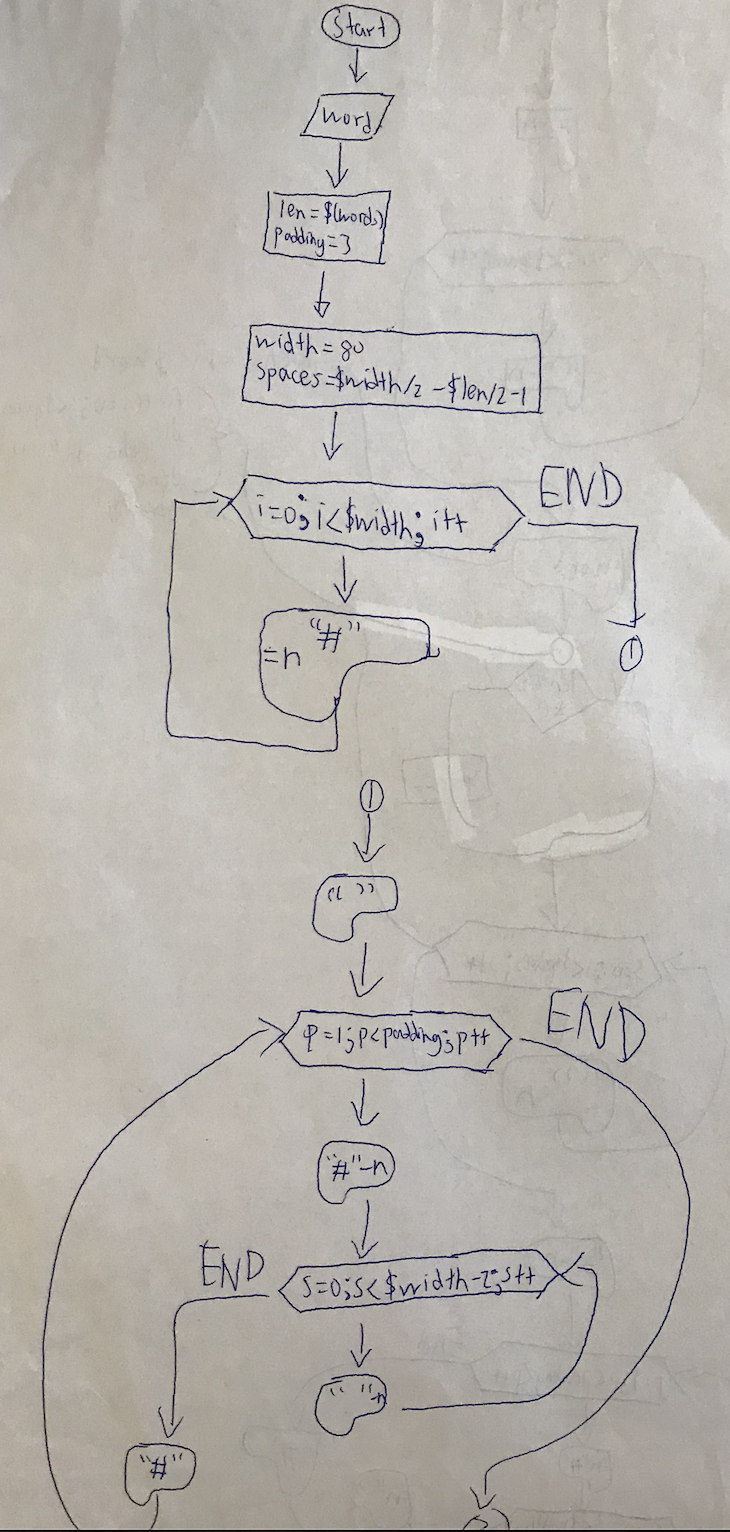 Start
word
len=$(words)
padding=3
width=80
spaces=$width/2-$len/2-1
i=0;i<$width;i++
END
"#"
=n
1
1
" "
p=1;p<padding;p++
END
"#"-n
END
s=0;s<$width-2;s++
" "-n
"#"